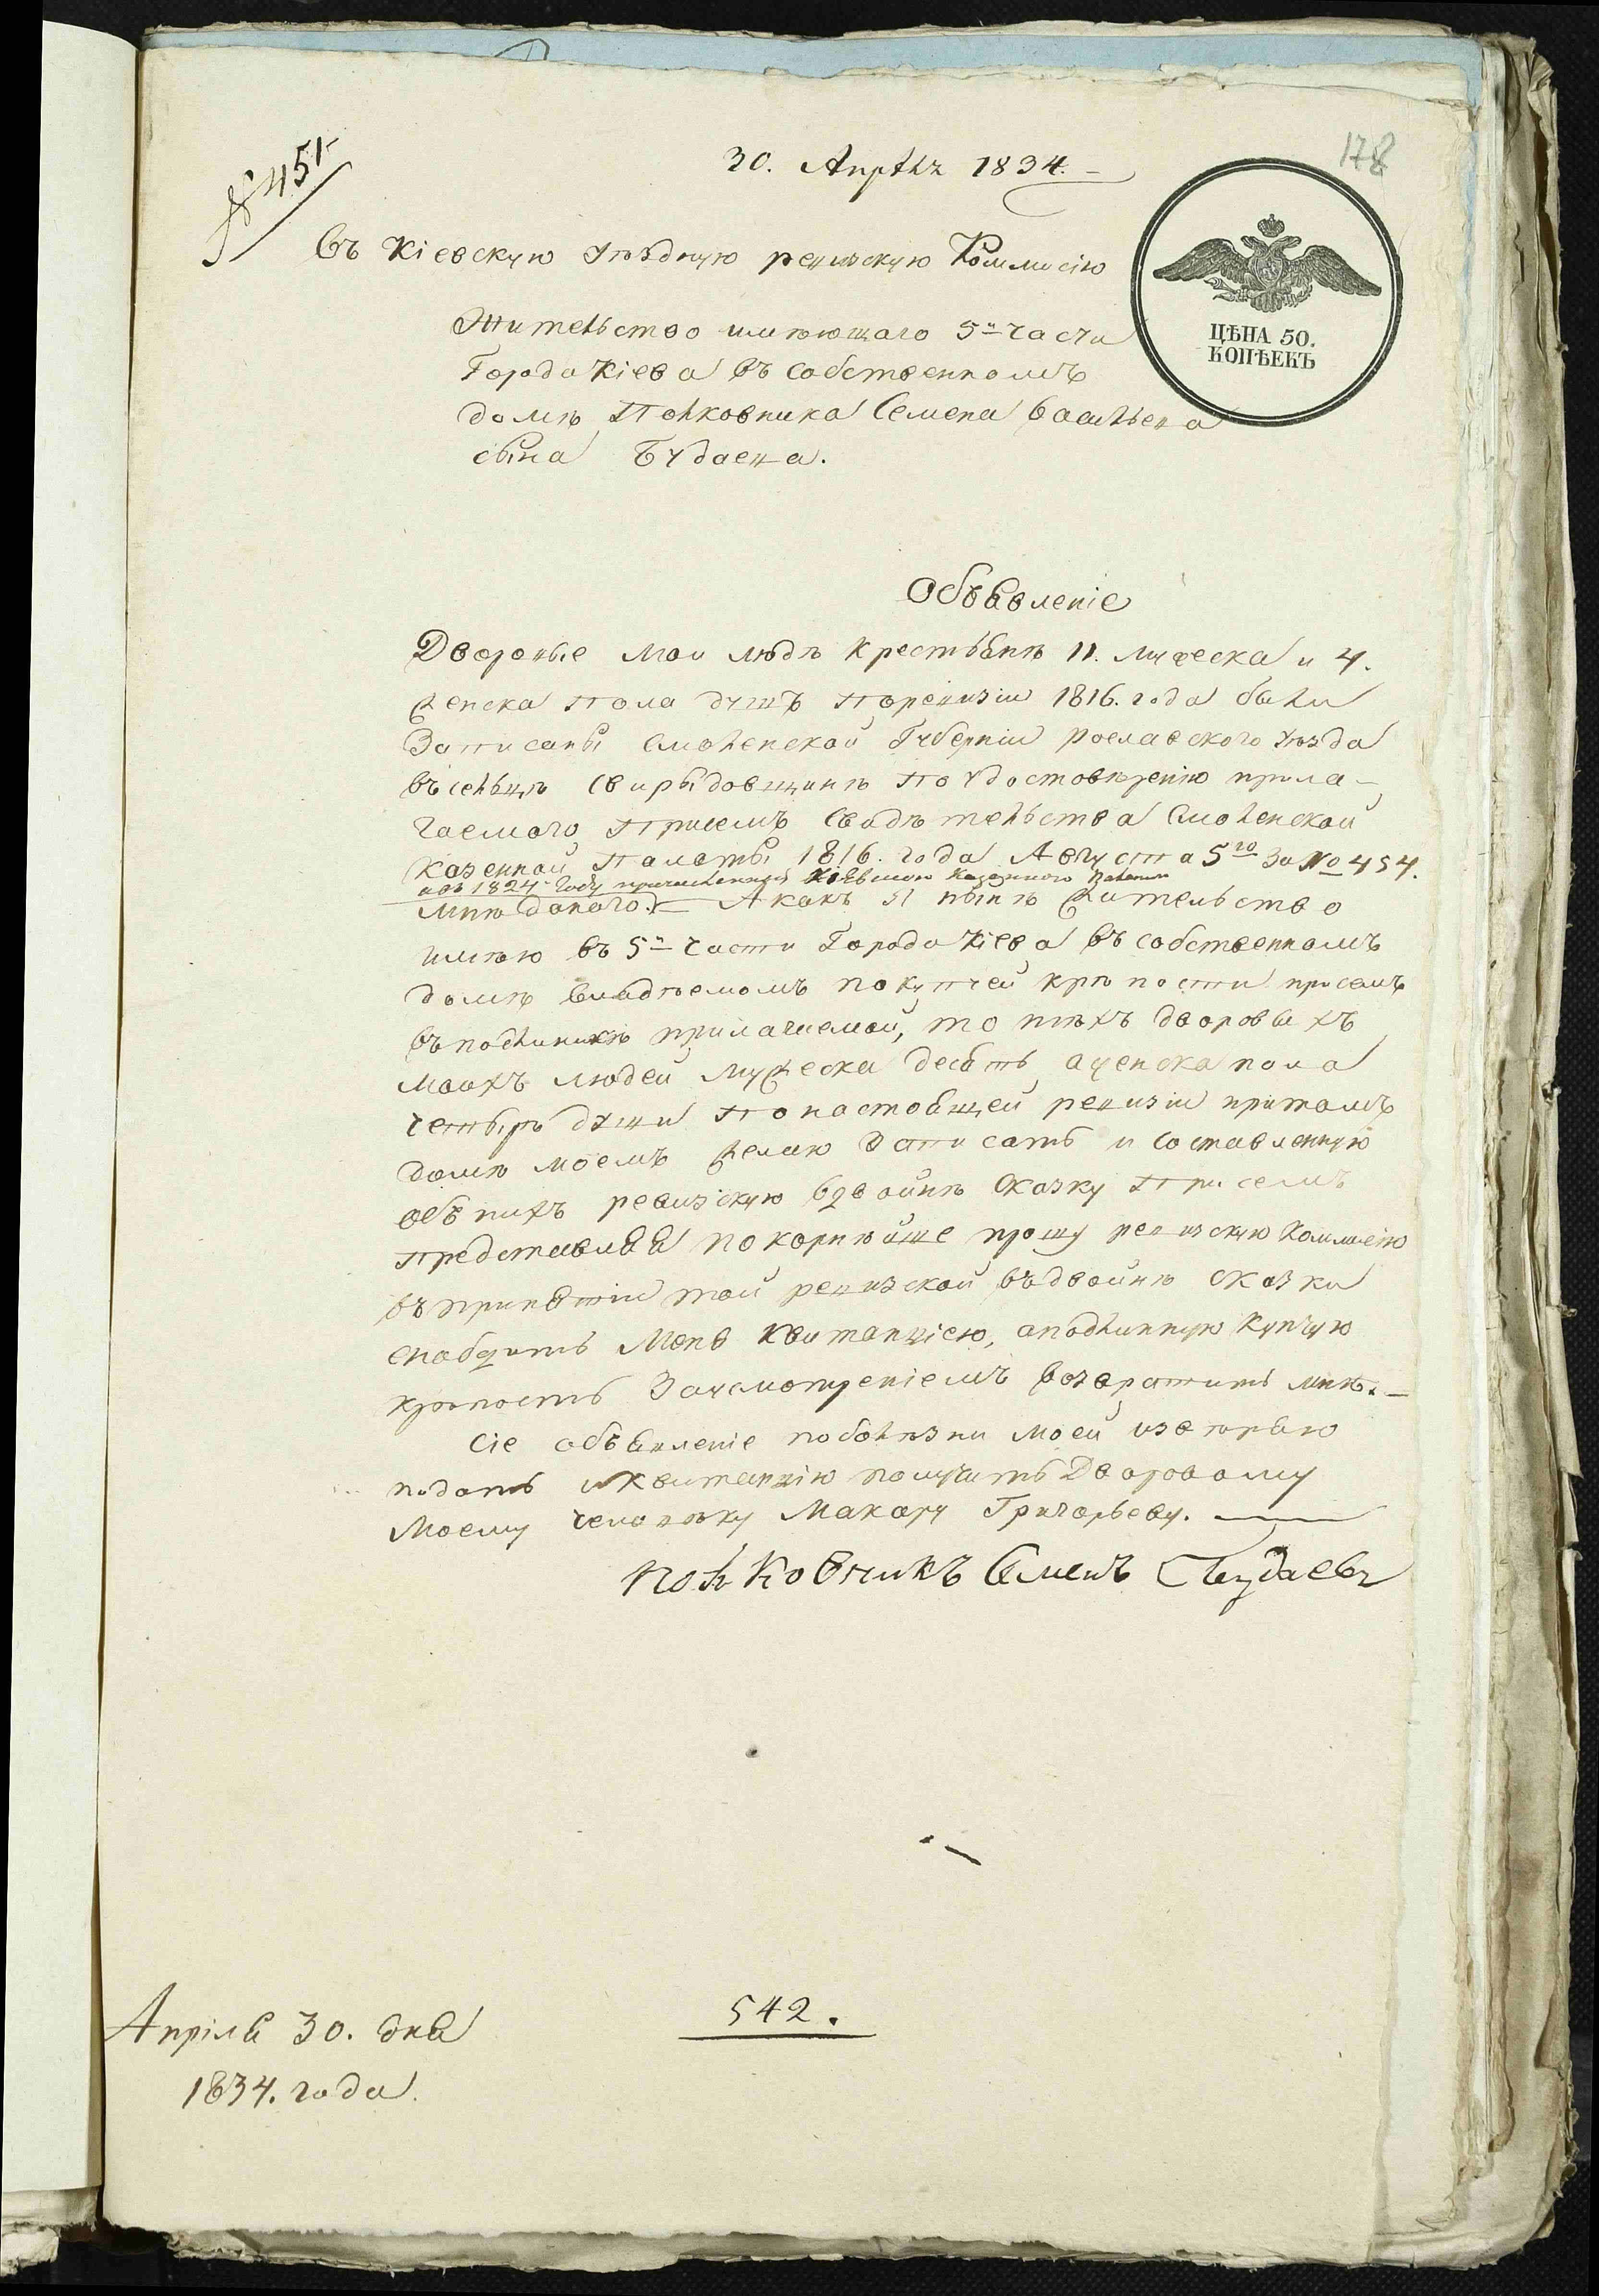 178
№ 451
30. Апрѣлѧ 1834.
Въ Кіевскую уѣздную ревизскую Коммисію
ЦѢНА 50.
КОПѢЕКЪ
Жительство имѣющаго 5й части
Города Кіева въ собственномъ
домѣ Полковника Семена Васильева
сына Будаева.
Объявленіе
Дворовые мои людѣ крестьянѣ 11. мужеска и 4.
женска пола душъ поревизіи 1816. года были
Записаны Смоленской Губерніи Рославского уѣзда
въ сельцѣ Свиридовщинѣ по удостовѣренію прила-
гаемого присемъ свидѣтельства Смоленской
Казенной Палаты 1816. года Августа 5го За № 454.
авъ 1824 Году причисленный Кіевскою Казенною Палатою
мнѣ даного. А какъ я нынѣ жительство
имѣю въ 5й части Города Кіева въ собственномъ
домѣ владѣемомъ покупчей крѣпости присемъ
въ подлиникѣ прилагаемой, то тѣхъ дворовыхъ
моихъ людей мужеска десять аженска пола
четырѣ души По настоящей ревизіи притомъ
домѣ моемъ желаю Записать и составленную
объ нихъ ревизскую вдвойнѣ сказку При семъ
представляя покорнѣйше прошу ревизскую Коммисію
въ принятіи той ревизской въдвойнѣ сказки
снабдить меня квитанціею, аподлинную купчую
крѣпость Занасмотреніемъ возвратить мнѣ.
Сіе объявленіе поболѣзни моей извѣряю
подать и квитанцію получить Дворовому
моему человѣку Макару Григорьеву.
Полковникъ Семенъ Будаевъ
542.
Апрѣля 30. дня
1834. года